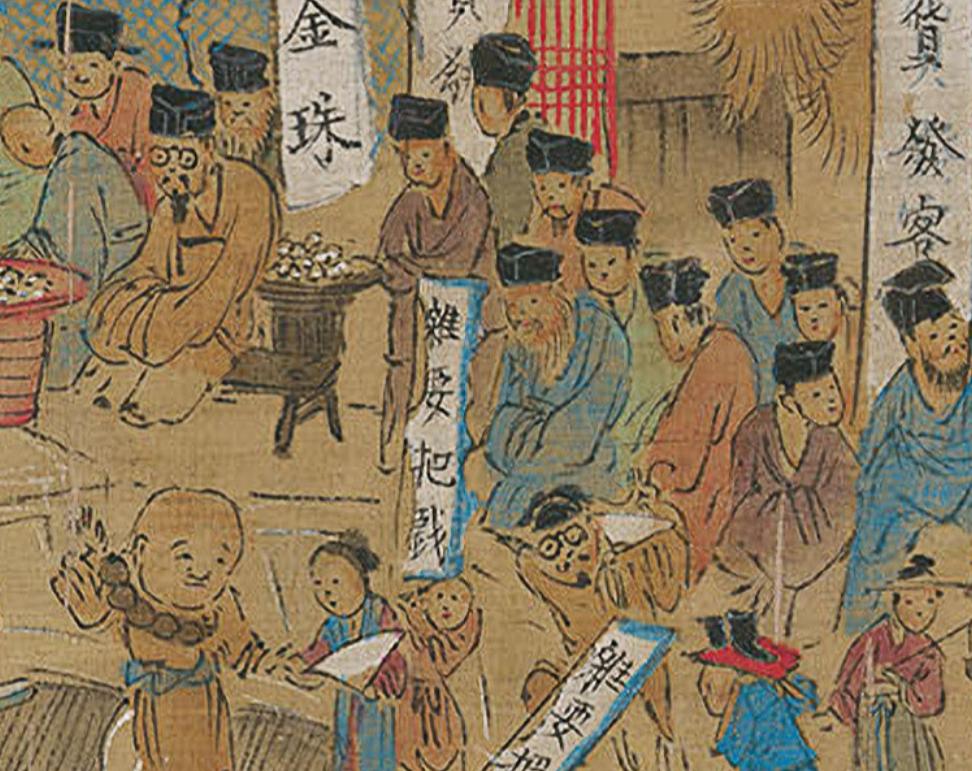 貨發客
發
金珠
雜耍把戲
雜耍把